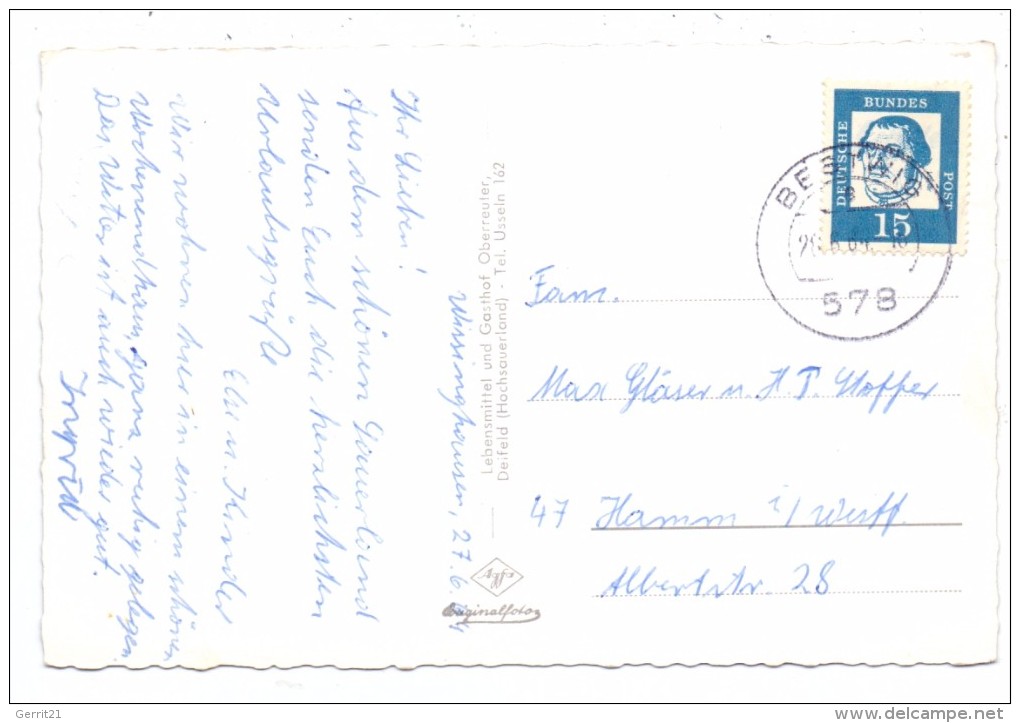 Wissinghausen, 27.6.64
Ihr Lieben!
Aus dem schönen Sauerland
senden Euch die herzlichsten
Urlaubsgrüße
Elli u. Kinder
Wir wohnen hier in einem schönen
Wochenendhaus, ganz ruhig gelegen.
Das Wetter ist auch wieder gut.
Ingrid
Lebensmittel und Gasthof Oberreuter,
Deifeld (Hochsauerland) - Tel. Usseln 162
Agfa
Originalfoto
DEUTSCHE
BUNDES
POST
15
BESTWIG
578
Fam.
Max Gläser u. H. P. Hoffer
47 Hamm i/Westf.
Albertstr. 28
Gerrit21
www.delcampe.net